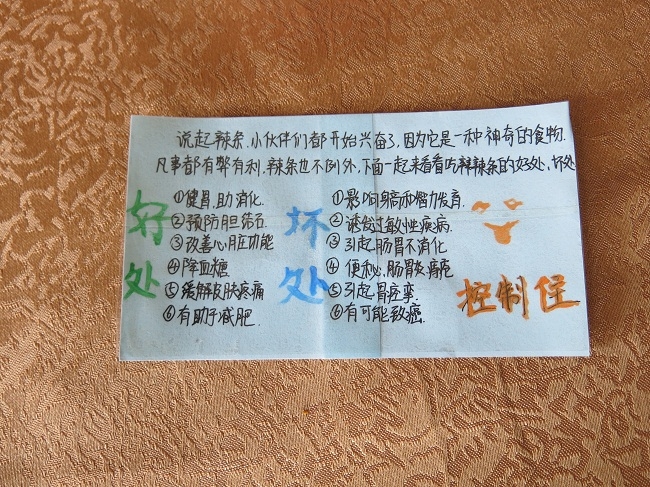 说起辣条,小伙伴们都开始兴奋了,因为它是一种神奇的食物.
凡事都有弊有利,辣条也不例外,下面一起来看看吃辣条的好处,坏处
好处
①健胃,助消化.
②预防胆结石
③改善心脏功能
④降血糖
⑤缓解皮肤疼痛
⑥有助于减肥.
坏处
①影响身高和智力发育.
②诱发过敏性疾病.
③引起肠胃不消化.
④便秘,肠胃炎,痔疮
⑤引起胃痉挛.
⑥有可能致癌.
控制住